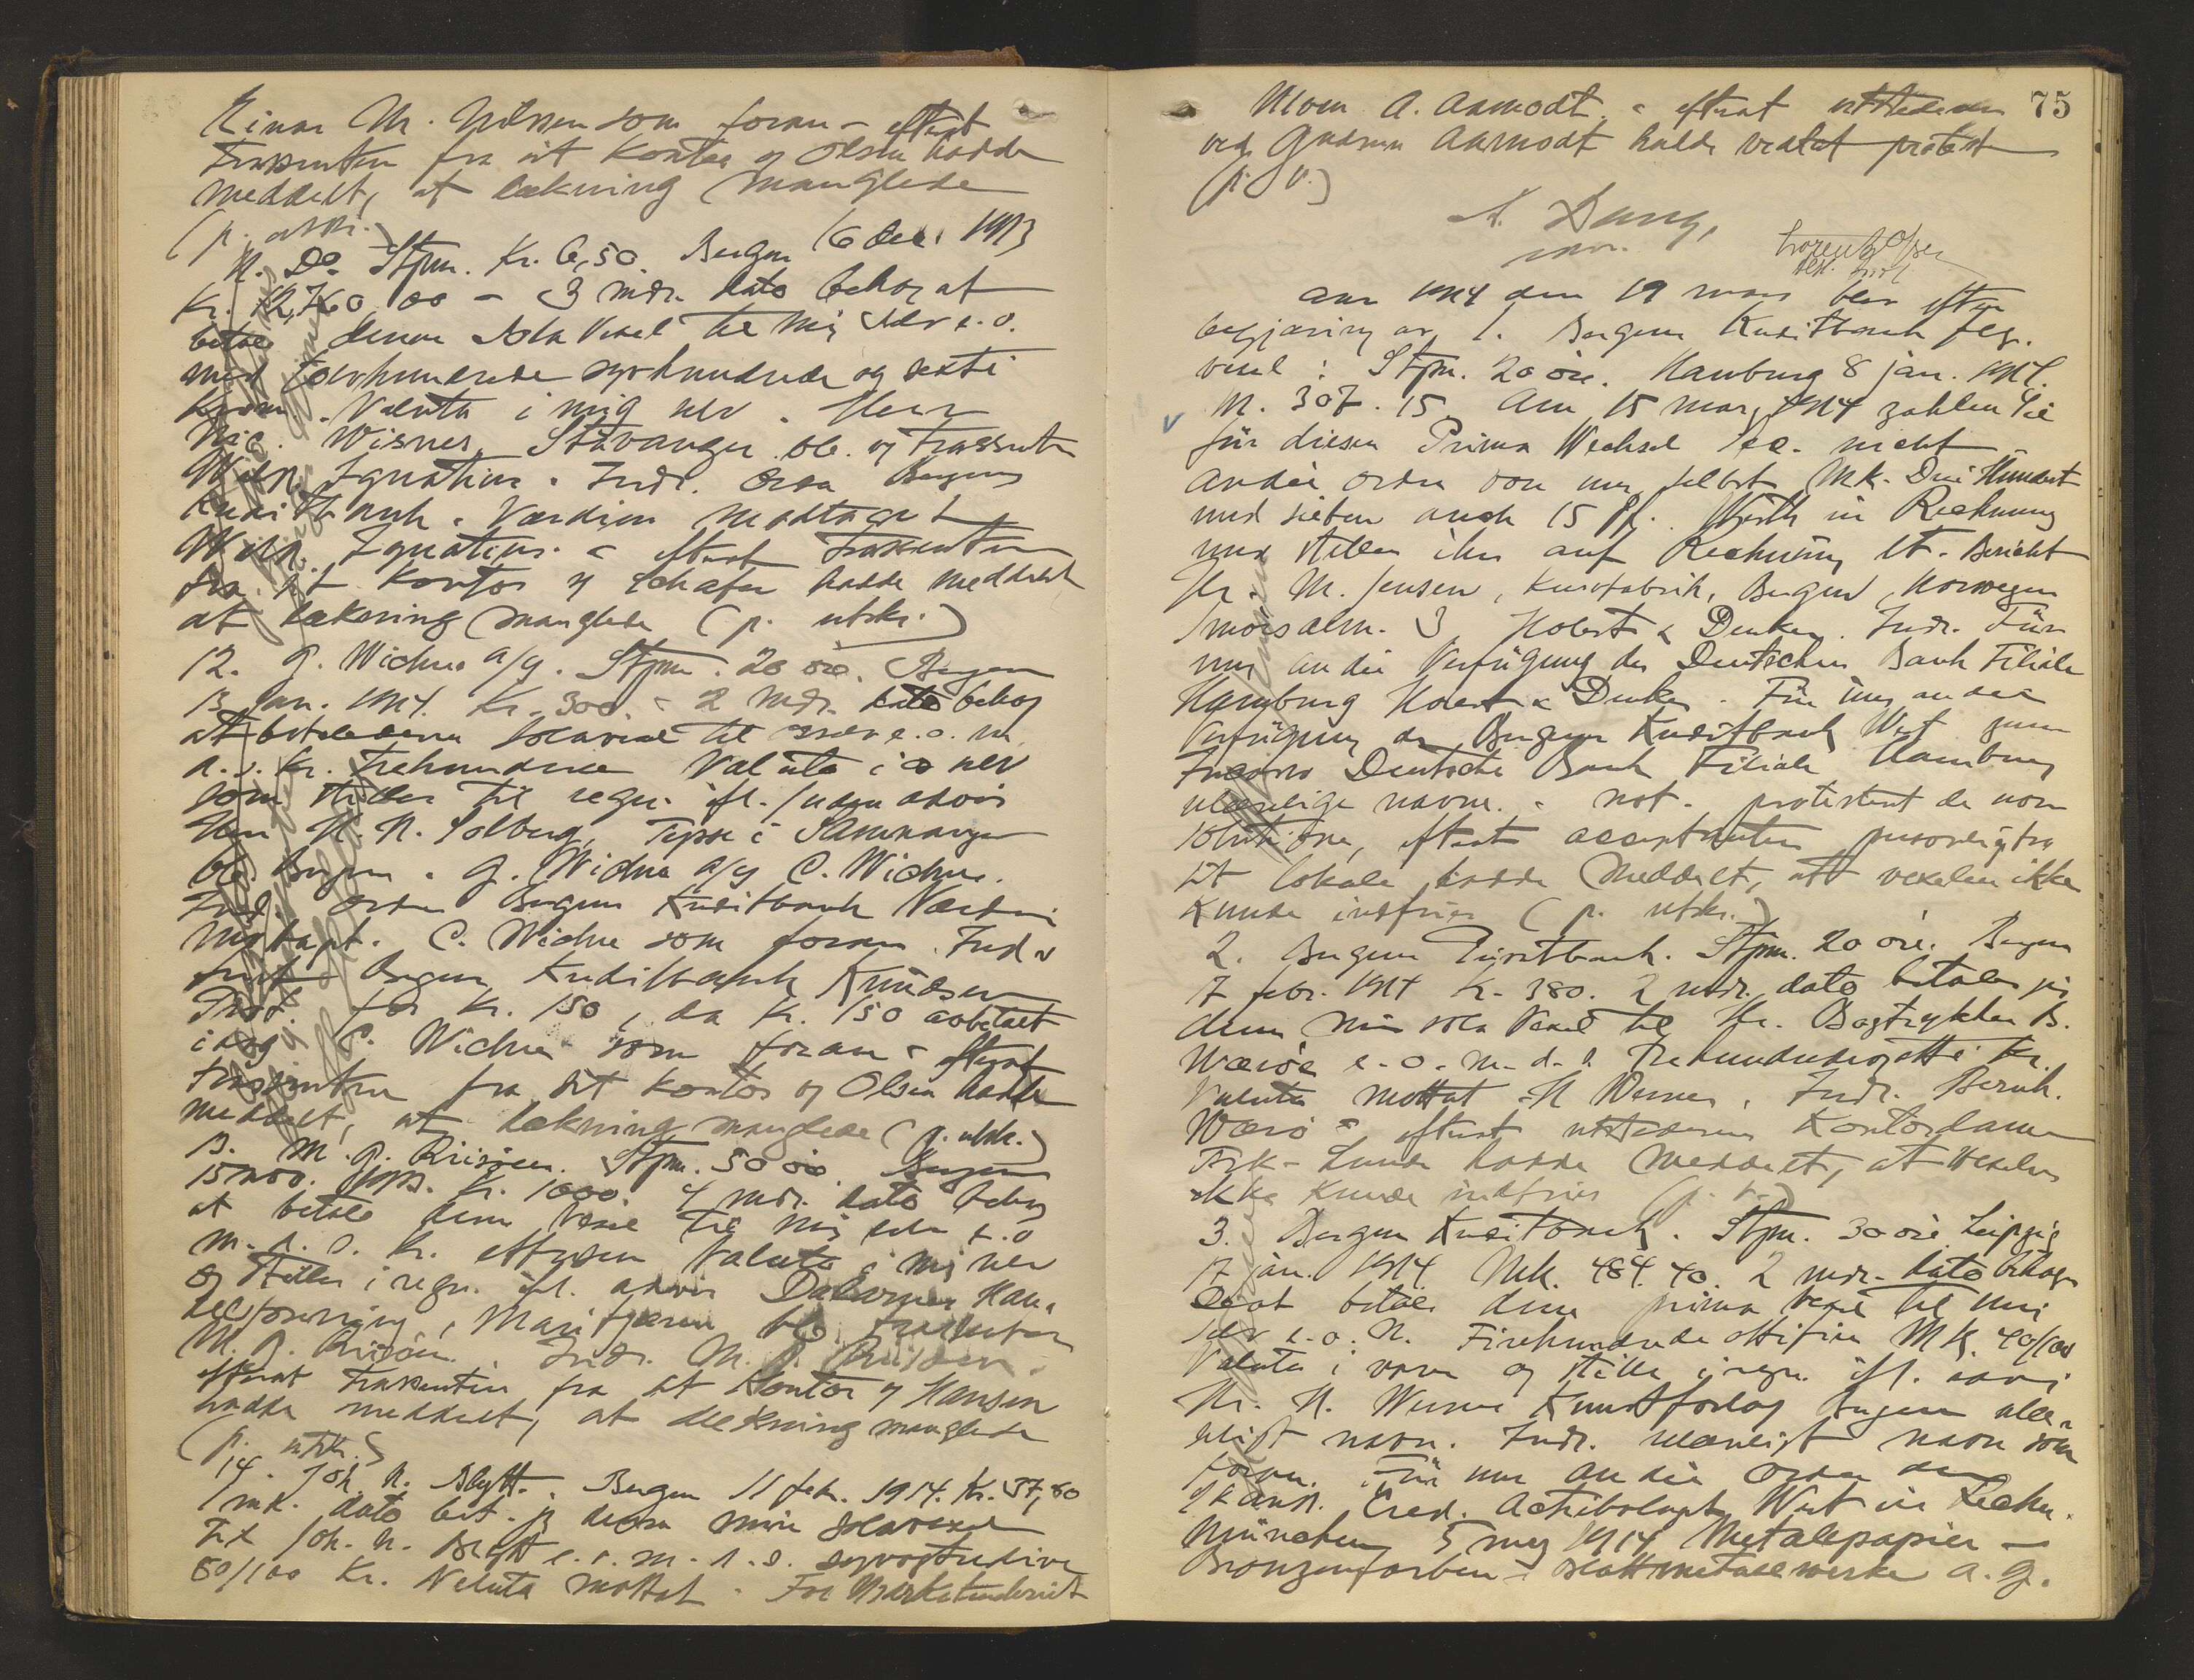 Einar M. Nilssen som foran - efterat
Trassenten fra sit kontor og Olsen hadde
meddelt, at dekning manglede
(p. utskr.)
11. Do. Stpm. Kr. 6,50. Bergen 16 dec. 1913
Kr. 12,760,00 - 3 mdr. dato behag at
betale denne Sola Vexel til mig selv e.o.
med tolvhundrede syvhundrede og sexti
Kroner. Valuta i mig selv. Herr
Nic. Wisnes, Stavanger. ble. og Trassent
Wilh. Ignatius. Indr. Ordre Bergens
Kreditbank. Værdien modtaget
Wilh. Ignatius. - efterat Trassenten
fra sit Kontor og Schäfer hadde meddelt
at dekning manglede (p. utskr.)
12. G. Wichne a/g. Stpm. 20 øre. Bergen
13 jan. 1914. Kr. 300. - 2 mdr. dato behag
at betale denne solavexel til os selv e.o. m
d. s. Kr. Trehundrede Valuta i os selv
som stilles til regn. ifl./uden advis
Herr N. N. Solberg, Tysse i Samnanger
bet. Bergen. G. Wichne a/g C. Wichne.
Ind. ordre Bergens Kreditbank Værdi
modtagt. C. Wichne som foran. Ind.
Bergens Kreditbank Knudsen
Prot. for Kr. 150, da Kr. 150 avbetalt
idag C. Wichne som foran - efterat
trassenten fra sit kontor og Olsen hadde
meddelt, at dekning manglede (p. utskr.)
13. M. G. Riisøen. Stpm. 50 øre Bergen
15 nov. 1913. Kr. 1000. 4 mdr. dato behag
at betale denne Vexel til mig selv e.o
m. d. s. Kr. ettusen Valuta i mig selv
og stilles i regn. ifl. advis Dalsøren Han-
delsforening, Marifjæren ble. Trassenten
M. G. Riisøen. Indr. M. G. Riisøen.
efterat Trassenten fra sit Kontor og Hansen
hadde meddelt, at dækning manglede
(p. utskr.)
14. Joh. N. Blytt. Bergen 11 feb. 1914. Kr. 57,80
1 md. dato bet. jeg denne min solavexel
til Joh. N. Blytt e.o. m. d. s. syvogfemti
80/100 Kr. Valuta mottat. For Marketenderiet
75
Mom A. Aamodt - efterat utstederen
ved Gudrun Aamodt hadde vedtat protest
(p. v.)
A. Dung,
Lorentz Olsen
Aar 1914 den 19 mars blev efter
begjæring av 1. Bergens Kreditbank flg.
vexel: Stpm. 20 øre. Hamburg 8 jan. 1914.
M. 307.15. Am 15 März 1914 zahlen Sie
für diesen Prima Wechsel Sec. nicht
an die Ordre von uns selbst Mk. Drei Hundert
und sieben auch 15 Pf. Werth in Rechnung
und stellen ihn auf Rechnung lt. Bericht
Hr. M. Jensen, Kurvfabrik, Bergen, Norwegen
Smörsalm. 3 Holert & Denker. Indr. Für
uns an die Verfügung der Deutschen Bank Filiale
Hamburg Holert & Denker. Für uns an die
Verfügung der Bergens Kreditbank Wert zum
Incasso Deutsche Bank Filiale Hamburg
ulæselige navne. - not. protestert de non
solutione, efterat acceptanten personlig fra
sit lokale hadde meddelt, at vexelen ikke
kunde indfries (p. utskr.)
2. Bergens Privatbank. Stpm. 20 øre. Bergen
7 febr. 1914 Kr. 380. 2 mdr. dato betaler jeg
denne min sola Vexel til Hr. Bogtrykker B.
Wærøe e.o. m. d. s. Trehundredeogotti Kr.
Valuta mottat H Werner. Indr. Bernh.
Wærø - efterat utstederens Kontordame
Frk. Lunde hadde meddelt, at vexelen
ikke kunde indfries (p. v.)
3. Bergens Kreditbank. Stpm. 30 øre Leipzig
17 jan. 1914 Mk. 484.40. 2 mdr. dato behag
De at betale denne prima Vexel til mig
selv e.o. M. Firehundrede ottifire Mk. 40/100
Valuta i varer og stille i regn. ifl. advis
Hr. H. Werner Kunstforlag Bergen ulæse-
ligt navn. Indr. ulæseligt navn som
foran. Für mich an die Order der
Skand. Cred. Actiebolaget Wert in Rechn.
München 5 1914 Metallpapier -
Bronzenfarben - Blattmetallwerke A.G.